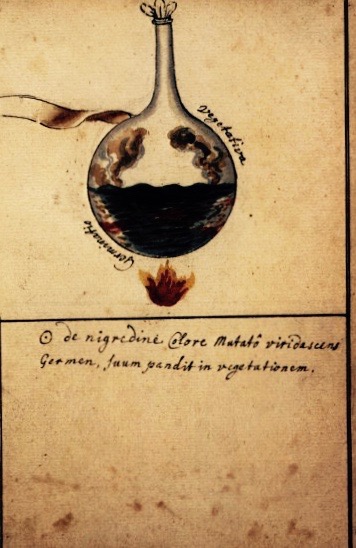 vegetativa
Germinatio
☉ de nigredine Colore Mutatô viridascens
Germen, suum pandit in vegetationem.